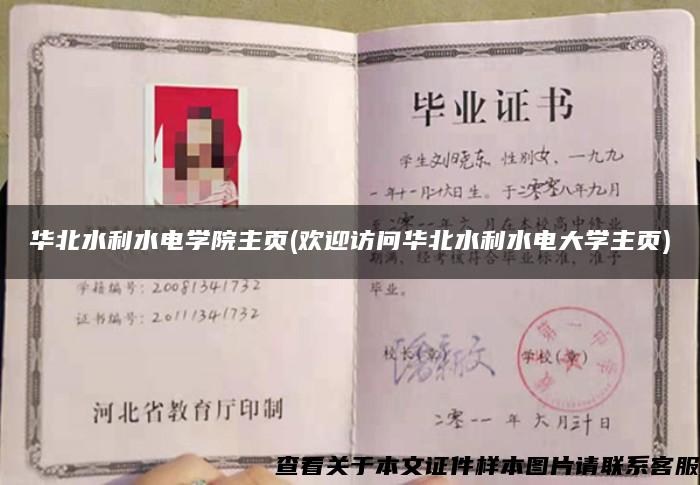 毕业证书
学生刘晓东 性别女、一九九
一年十一月十六日生。于二零零八年九月
至二零一一年六月在本校高中修业
华北水利水电学院主页(欢迎访问华北水利水电大学主页)
期满，经考核符合毕业标准，准予
毕业。
学籍编号：20081341732
证书编号：20111341732
校长(章)
学校(章)
第一中学
河北省教育厅印制
二零一一年六月三十日
查看关于本文证件样本图片请联系客服